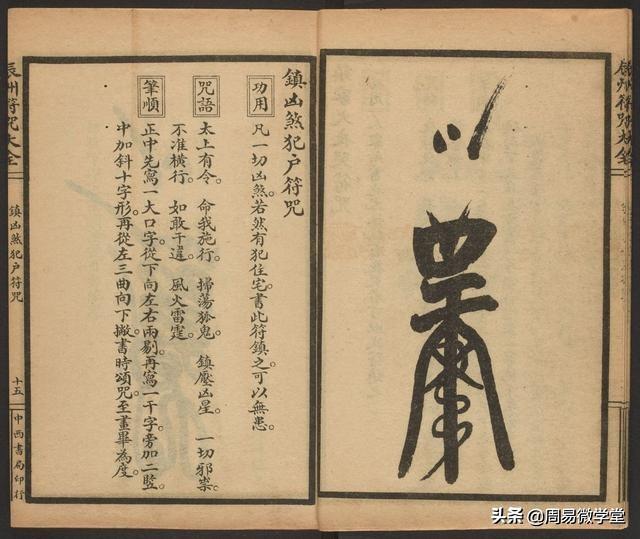 辰州符咒大全
鎮凶煞犯户符咒
功用
凡一切凶煞。若然有犯住宅。書此符鎮之。可以無患。
咒語
太上有令。命我施行。掃蕩狐鬼。鎮壓凶星。一切邪祟。
不准橫行。如敢干違。風火雷霆。
筆順
正中先寫一大口字。從下向左右兩剔。再寫一干字。旁加二竪。
中加斜十字形。再從左三曲向下撇。書時頌咒。至畫畢為度。
辰州符咒大全
鎮凶煞犯户符咒
十五
中西書局印行
头条 @周易微学堂